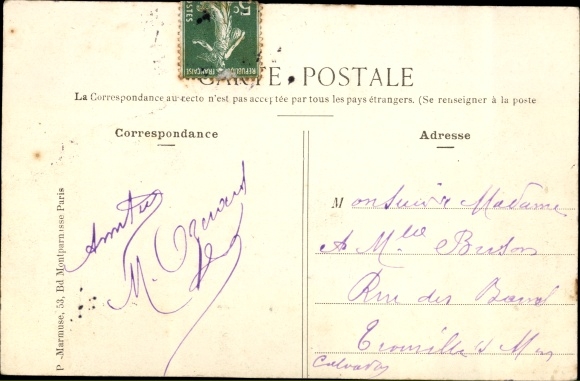 CARTE POSTALE
La Correspondance au recto n'est pas acceptée par tous les pays étrangers. (Se renseigner à la poste
Correspondance
Adresse
Monsieur Madame
& Mlle Buson
Rue des Bains
Trouville s/ Mer
Calvados
Amitiés
M.
P. Marmuse, 53, Bd Montparnasse Paris
POSTES
RÉPUBLIQUE FRANÇAISE